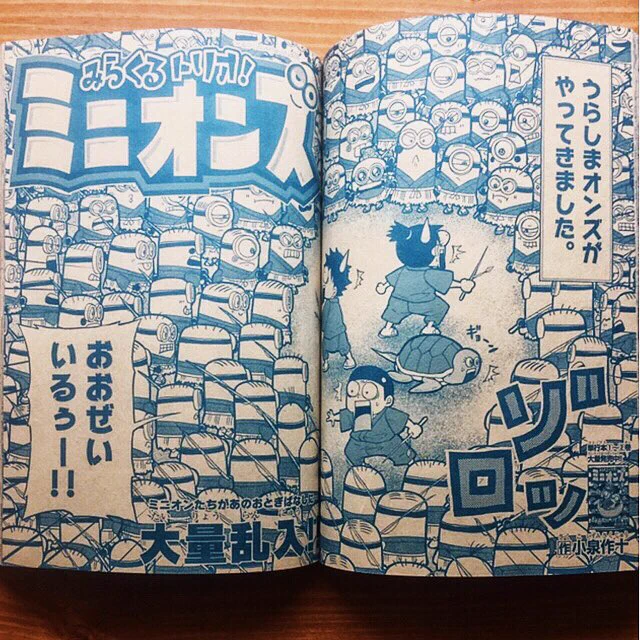 うらしまオンズが
やってきました。
みらくるトリオ!
ミニオンズ
ギーン
ゾロッ
おおぜい
いるぅー!!
ミニオンたちがあのおとぎばなしに
大量乱入!
作小泉作十